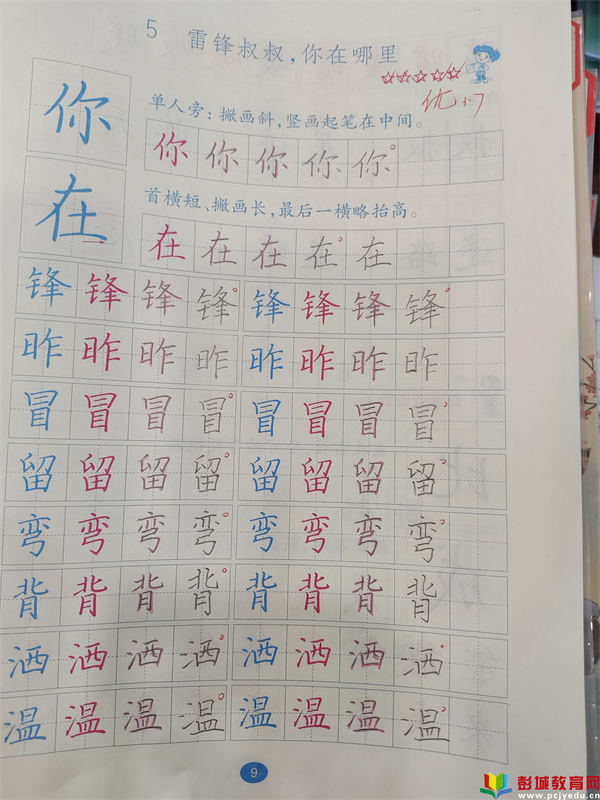 5 雷锋叔叔，你在哪里
优 3.7
你
单人旁：撇画斜，竖画起笔在中间。
你 你 你 你 你
在
首横短、撇画长，最后一横略抬高。
在 在 在 在 在
锋 锋 锋 锋 锋 锋 锋 锋
昨 昨 昨 昨 昨 昨 昨 昨
冒 冒 冒 冒 冒 冒 冒 冒
留 留 留 留 留 留 留 留
弯 弯 弯 弯 弯 弯 弯 弯
背 背 背 背 背 背 背 背
洒 洒 洒 洒 洒 洒 洒 洒
温 温 温 温 温 温 温 温
9
彭城教育网
www.pcjyedu.cn